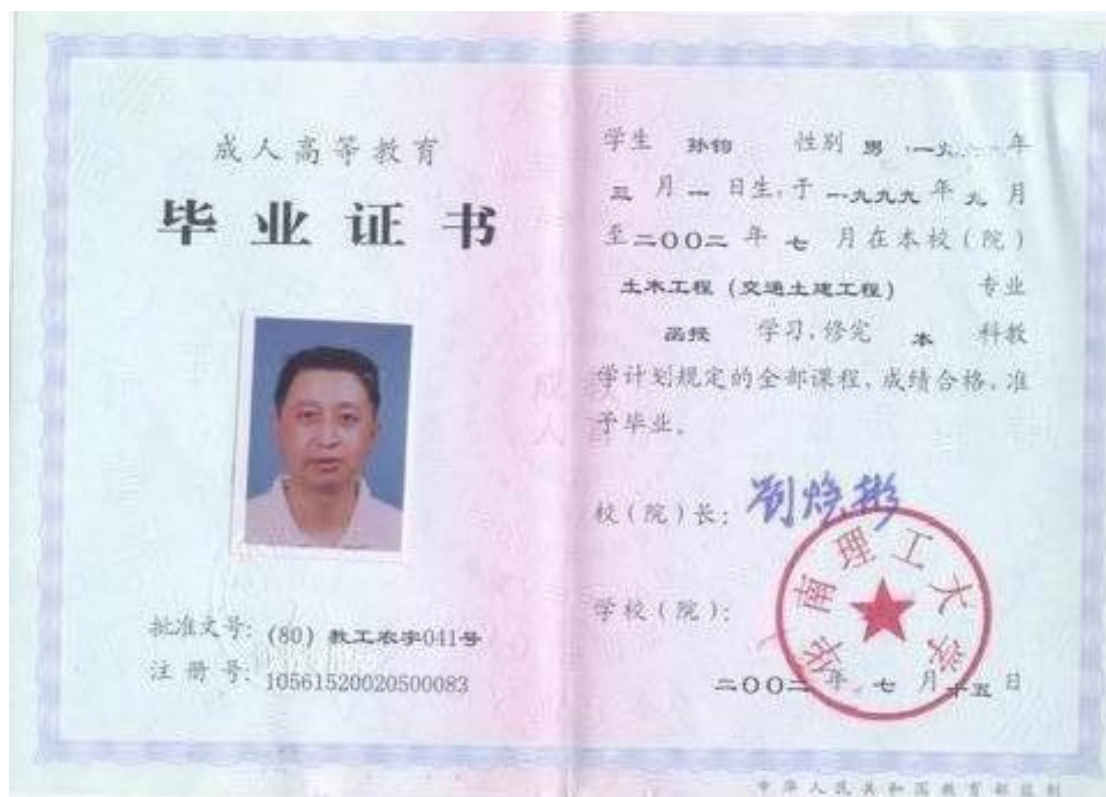 成人高等教育
毕业证书
批准文号: (80) 教工农字041号
注册号: 10561520020500083
学生 孙钧 性别 男 ,一九六一年
三 月 一 日生,于 一九九九 年 九 月
至二〇〇二 年 七 月在本校(院)
土木工程(交通土建工程) 专业
函授 学习,修完 本 科教
学计划规定的全部课程,成绩合格,准
予毕业。
校(院)长: 刘焕彬
学校(院):
华南理工大学
二〇〇二年 七 月十五日
中华人民共和国教育部监制
成人
教育